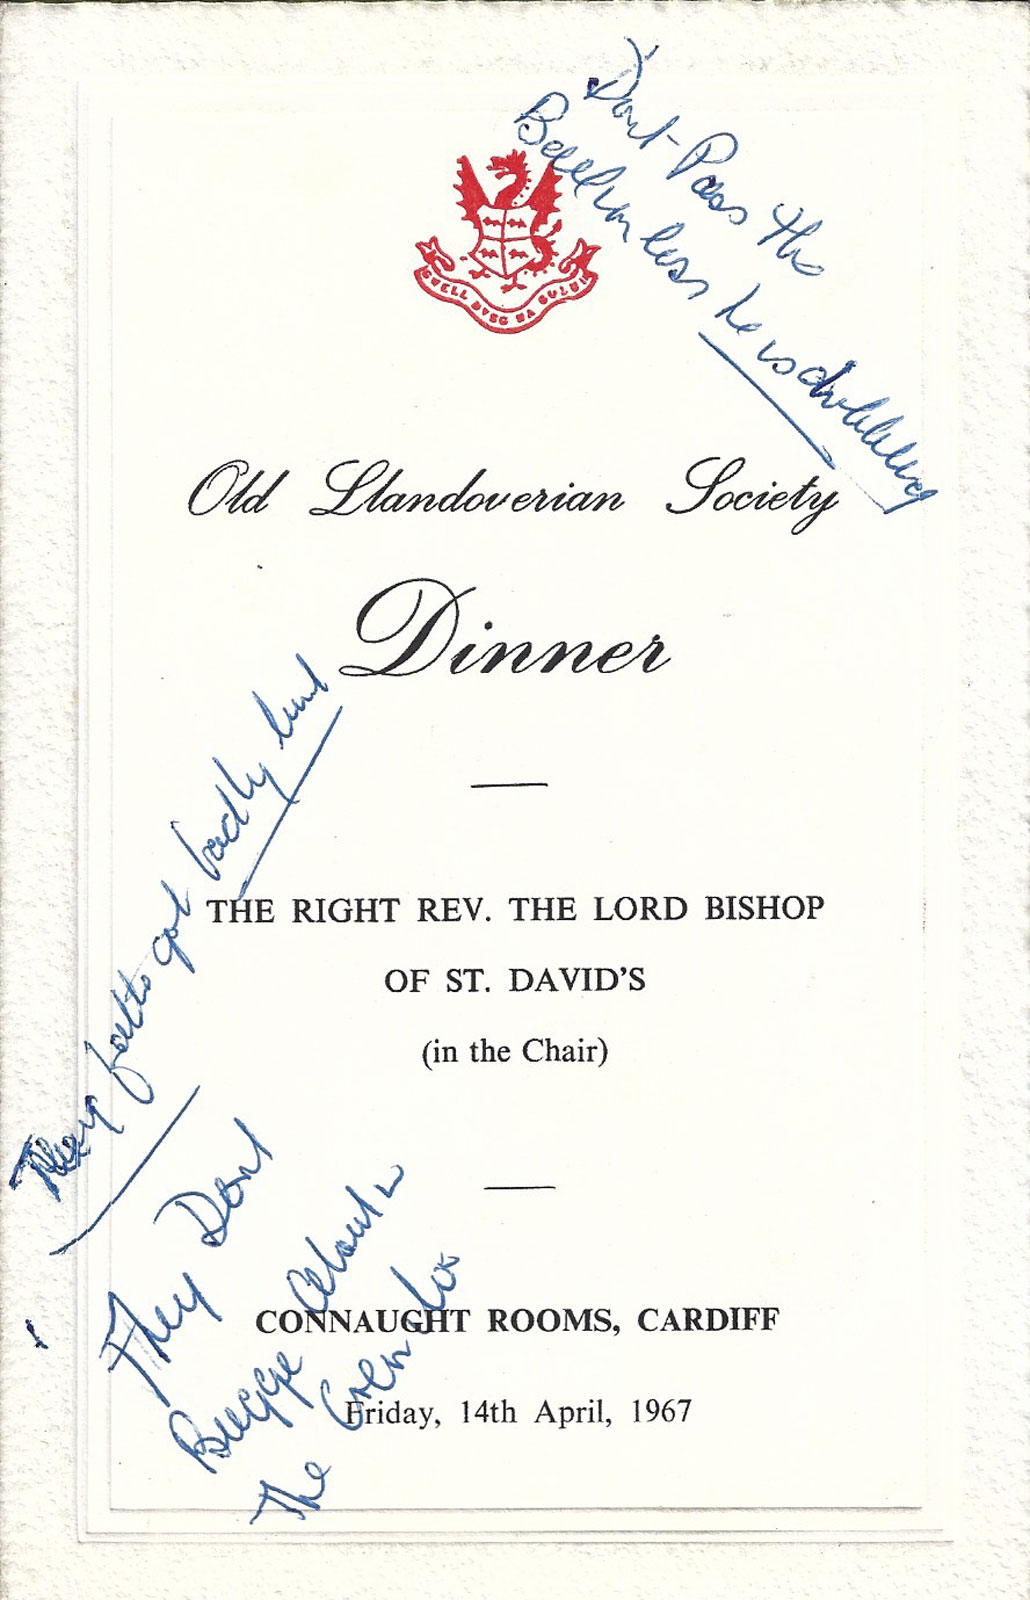 Dont Pass the
he is dribbling
GWELL DYSG NA GOLUD
Old Llandoverian Society
Dinner
They got badly
THE RIGHT REV. THE LORD BISHOP
OF ST. DAVID'S
(in the Chair)
They Dont
Bugge about
The
CONNAUGHT ROOMS, CARDIFF
Friday, 14th April, 1967